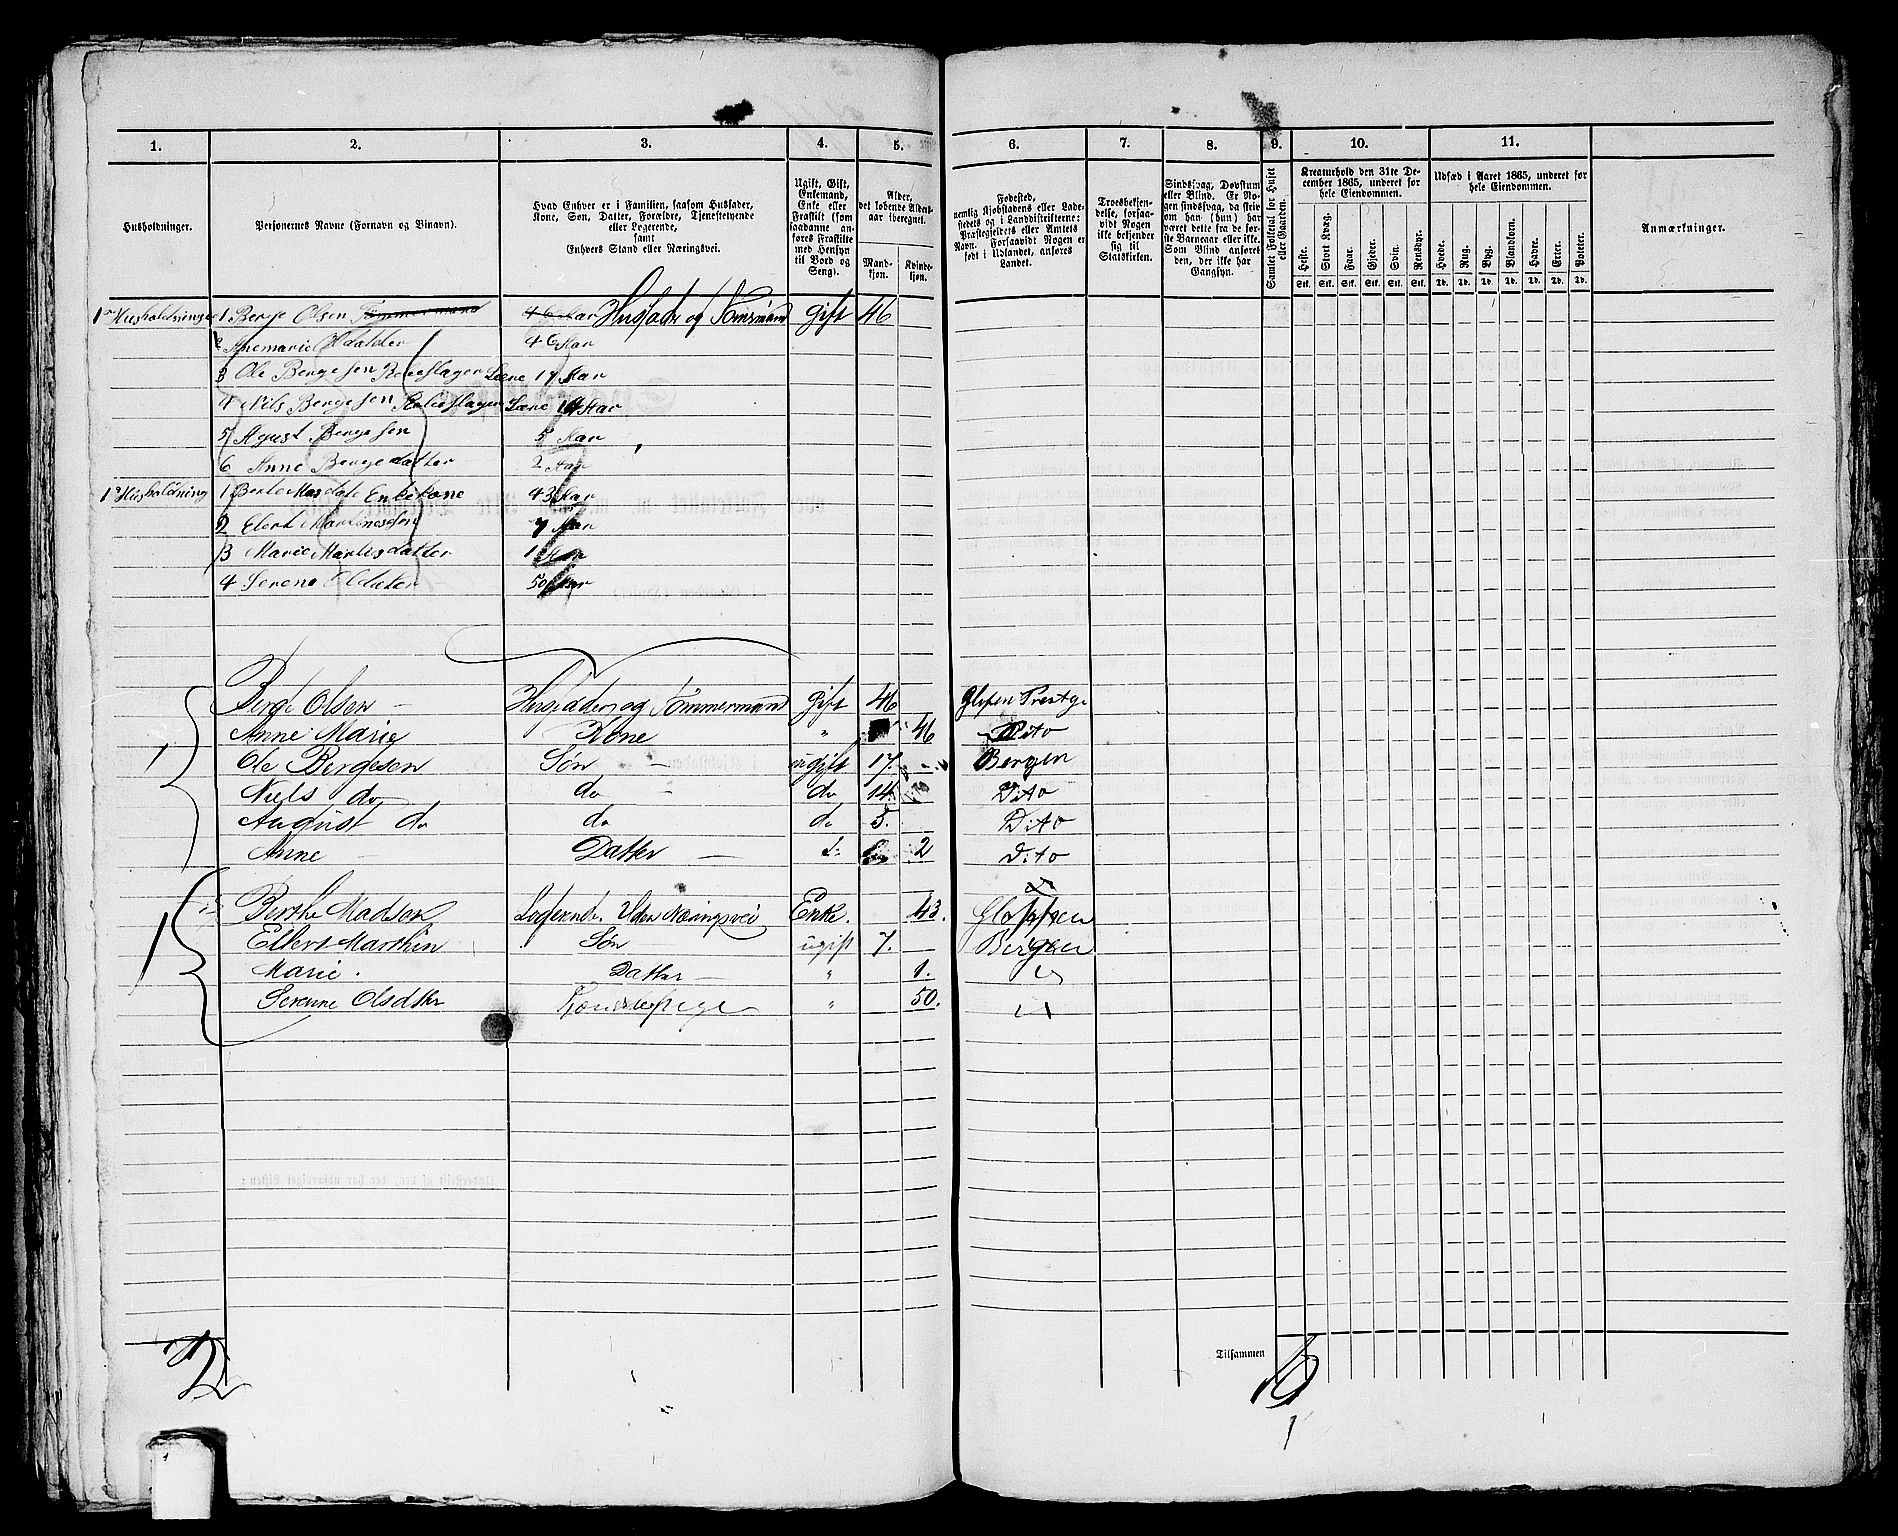 1. 2. 3. 4. 5. 6. 7. 8. 9. 10. 11.
Husholdninger.
Personernes Navne (Fornavn og Binavn).
Hvad Enhver er i Familien, saasom Husfader, Kone, Søn, Datter, Forældre, Tjenestetyende eller Logerende, samt Enhvers Stand eller Næringsvei.
Ugift, Gift, Enkemand, Enke eller Fraskilt (som saadanne anføres Fraskilte med Hensyn til Bord og Seng).
Alder, det løbende Aldersaar iberegnet.
Mandkjøn. Kvindekjøn.
Fødested, nemlig Kjøbstadens eller Ladestedets og i Landdistrikterne: Præstegjeldets eller Amtets Navn. Forsaavidt Nogen er født i Udlandet, anføres Landet.
Troesbekjendelse, forsaavidt Nogen ikke bekjender sig til Statskirken.
Sindssvag, Døvstum eller Blind. Er Nogen sindssvag, da skrives om han (hun) har været dette fra de første Barneaar eller ikke. Som Blind anføres den, der ikke har Gangsyn.
Samlet Folketal for Huset eller Gaarden.
Kreaturhold den 31te December 1865, underet for hele Eiendommen.
Heste. Stort Kvæg. Faar. Gjeder. Svin. Rensdyr.
Stk. Stk. Stk. Stk. Stk. Stk.
Udsæd i Aaret 1865, underet for hele Eiendommen.
Hvede. Rug. Byg. Blandkorn. Havre. Erter. Poteter.
Td. Td. Td. Td. Td. Td. Td.
Anmærkninger.
1 Husholdninger 1 Berje Olsen Tømmermand 46 Aar Husfader og Tømermand Gift 46
2 Anemarie Oldatter 46 Aar
3 Ole Bergesen Rebeslager Lære 17 Aar
4 Nils Bergesen Rebeslager Lære 14 Aar
5 Agust Bergesen 5 Aar
6 Anne Bergedatter 2 Aar
1 Husholdning 1 Berte Masdate Enkekone 43 Aar
2 Elert Martinessøn 7 Aar
3 Marie Martisdatter 1 Aar
4 Serene Oldater 50 Aar
1 Berge Olsen Husfader og Tømmermand Gift 46 Gloppen Prestgj
Anne Marie Kone " 46 Dito
Ole Bergesen Søn ugift 17. Bergen
Niels do do do 14. Dito
August do do do 5. Dito
Anne Datter d: 2 Dito
1 Berthe Madsen Logerende. Uden Næringsvei Enke. 43. Gloppen
Ellert Marthin Søn ugift 7. Bergen
Marie. Datter " 1. "
Serenne Olsdtr " 50. "
2
Tilsammen 10
1